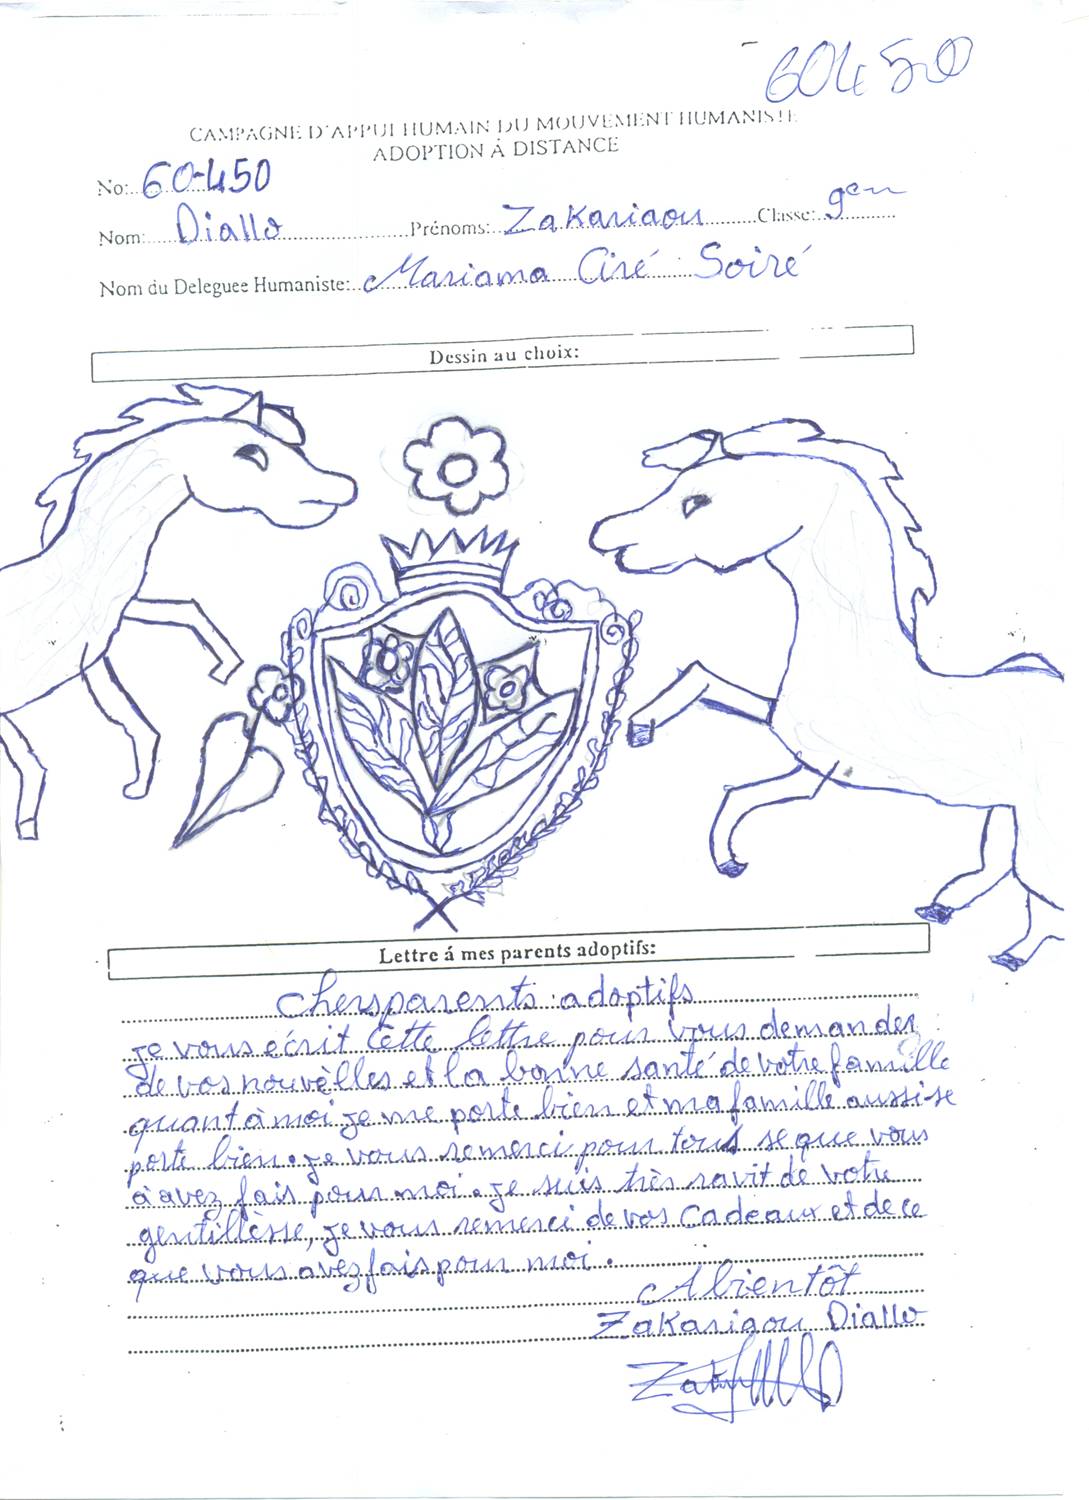 60450
CAMPAGNE D'APPUI HUMAIN DU MOUVEMENT HUMANISTE
ADOPTION Á DISTANCE
No: 60-450
Nom: Diallo Prénoms: Zakariaou Classe: 9em
Nom du Deleguee Humaniste: Mariama Ciré Soiré
Dessin au choix:
Lettre á mes parents adoptifs:
Chers parents adoptifs
je vous écrit cette lettre pour vous demander
de vos nouvèlles et la bonne santé de votre famille
quant à moi je me porte bien et ma famille aussi se
porte bien. je vous remerci pour tous se que vous
a avez fais pour moi. je suis très ravit de votre
gentillèsse, je vous remerci de vos cadeaux et de ce
que vous avez fais pour moi.
A bientôt
Zakariaou Diallo